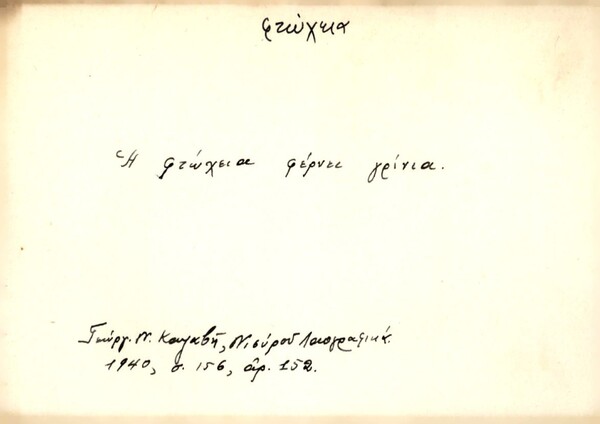 φτώχεια
Ἡ φτώχεια φέρνει γρίνια.
Γεώργ. Ν. Καζαβῆ, Νισύρου Λαογραφικά.
1940, σ. 156, ἀρ. 152.